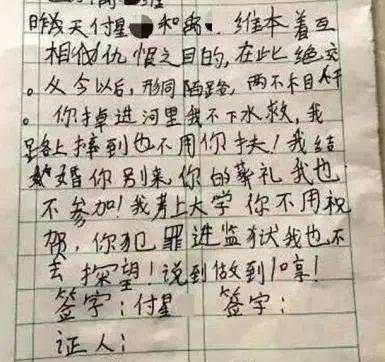 昨天付星 和禹 维本着互
相仇恨之目的,在此绝交
。从今以后,形同陌路,两不相欠
。你掉进河里我不下水救,我
路上摔到也不用你扶!我结
婚你别来,你的葬礼我也
不参加!我考上大学你不用祝
贺,你犯罪进监狱我也不
去探望!说到做到
签字:付星 签字:
证人: